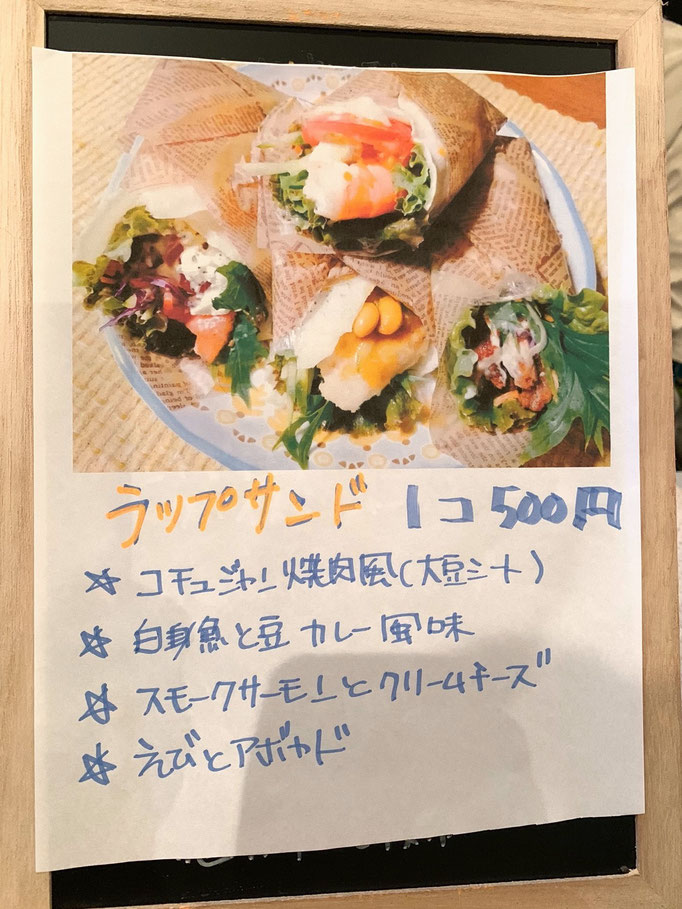 ラップサンド 1コ 500円
☆ コチュジャン焼肉風(大豆ミート)
☆ 白身魚と豆 カレー風味
☆ スモークサーモンとクリームチーズ
☆ えびとアボカド